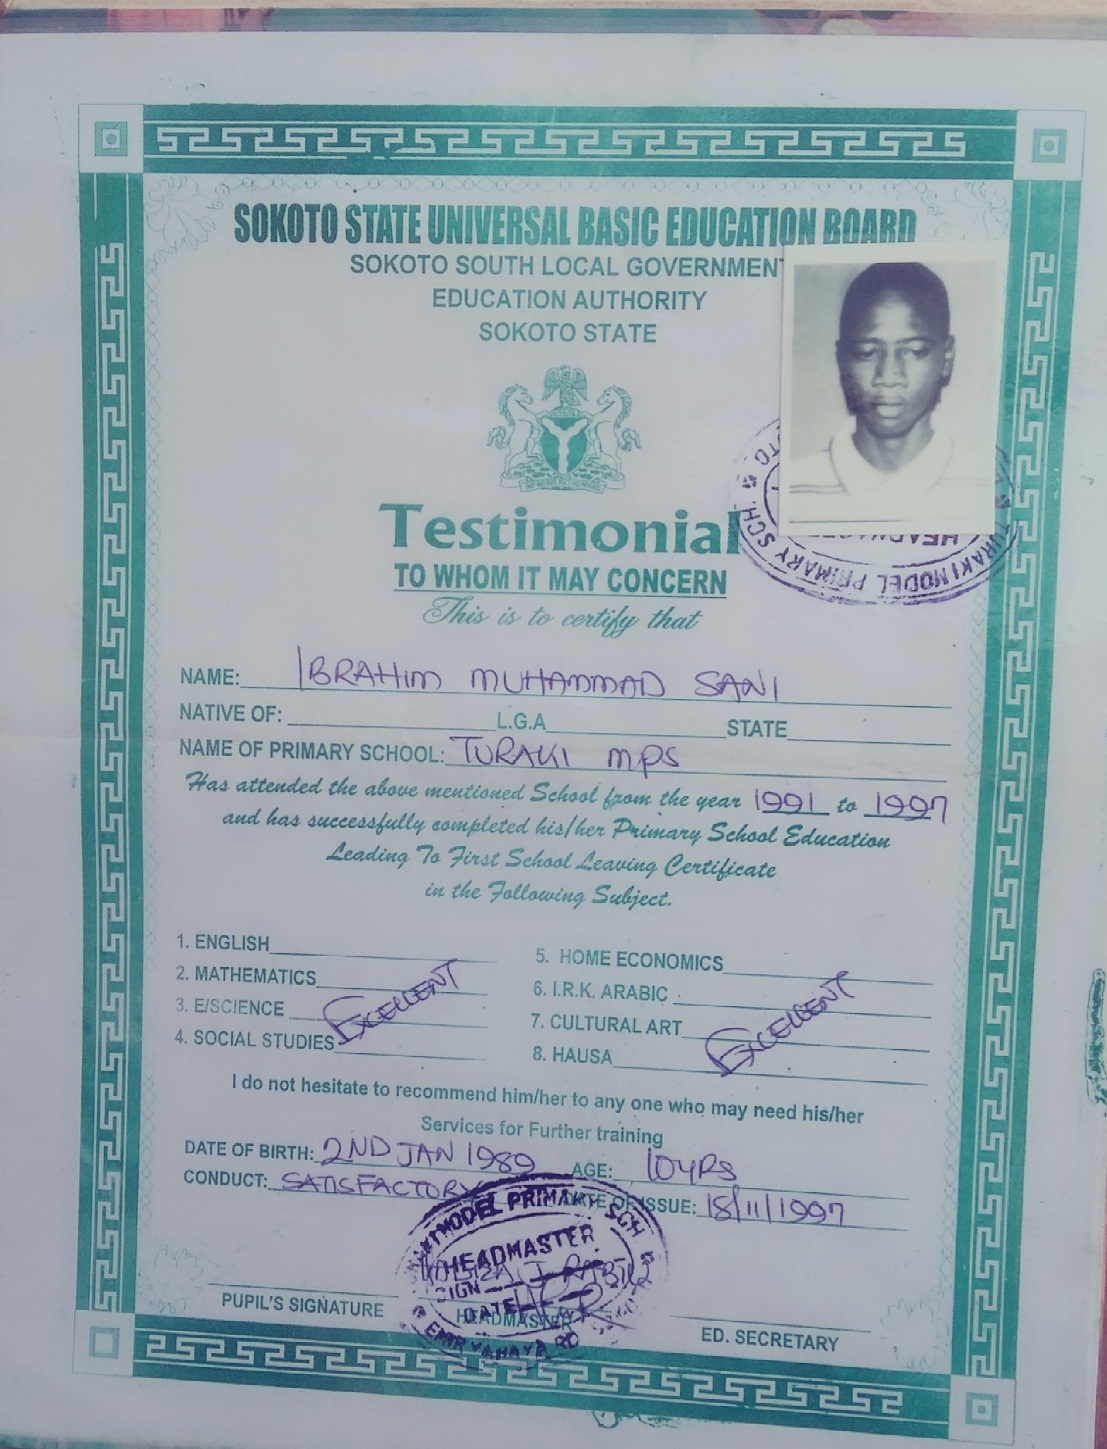 SOKOTO STATE UNIVERSAL BASIC EDUCATION BOARD
SOKOTO SOUTH LOCAL GOVERNMENT
EDUCATION AUTHORITY
SOKOTO STATE
Testimonial
TO WHOM IT MAY CONCERN
This is to certify that
TURAKI MODEL PRIMARY SCH.
NAME: IBRAHIM MUHAMMAD SANI
NATIVE OF: L.G.A STATE
NAME OF PRIMARY SCHOOL: TURAKI MPS
Has attended the above mentioned School from the year 1991 to 1997
and has successfully completed his/her Primary School Education
Leading To First School Leaving Certificate
in the Following Subject.
1. ENGLISH
2. MATHEMATICS
3. E/SCIENCE
4. SOCIAL STUDIES
EXCELLENT
5. HOME ECONOMICS
6. I.R.K. ARABIC
7. CULTURAL ART
8. HAUSA
EXCELLENT
I do not hesitate to recommend him/her to any one who may need his/her
Services for Further training
DATE OF BIRTH: 2ND JAN 1989 AGE: 10YRS
CONDUCT: SATISFACTORY DATE OF ISSUE: 18/11/1997
MODEL PRIMARY SCH
HEADMASTER
SIGN
DATE
PUPIL'S SIGNATURE
HEADMASTER
ED. SECRETARY